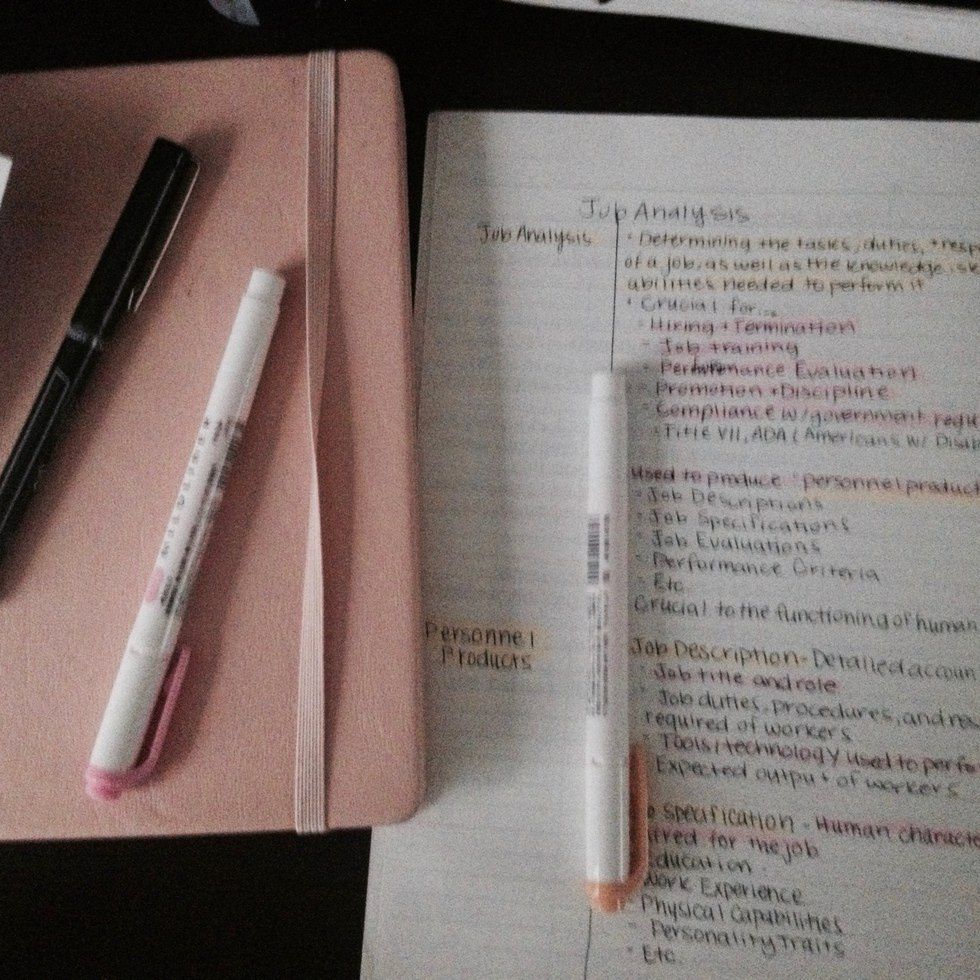 Job Analysis
Job Analysis
• Determining the tasks, duties, + resp
of a job, as well as the knowledge, sk
abilities needed to perform it
• Crucial for...
- Hiring + Termination
- Job training
- Performance Evaluation
- Promotion + Discipline
- Compliance w/ government regu
- Title VII, ADA (Americans w/ Disab
Used to produce "personnel product
- Job Descriptions
- Job Specifications
- Job Evaluations
- Performance Criteria
- Etc.
Crucial to the functioning of human
Personnel
Products
Job Description - Detailed accoun
- Job title and role
- Job duties, procedures, and res
required of workers
- Tools/technology used to perfo
- Expected output of workers
specification - Human characte
for the job
- Education
- Work Experience
- Physical Capabilities
- Personality Traits
- Etc.